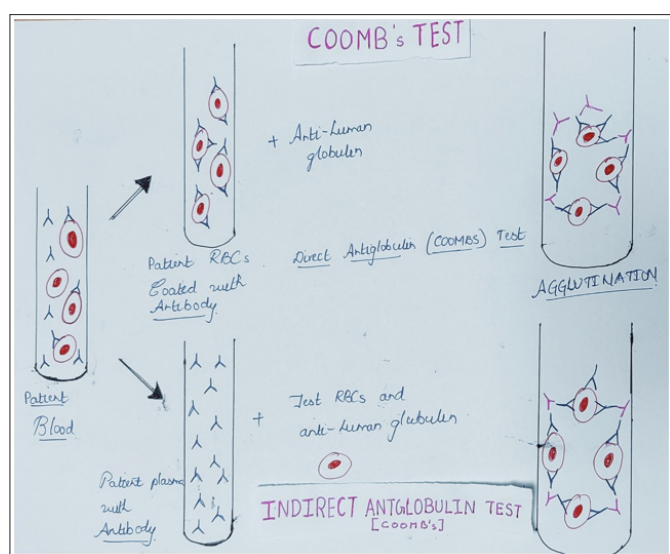 COOMB's TEST
+ Anti-Human
globulin
Patient RBCs
Coated with
Antibody.
Direct Antiglobulin (COOMBS) Test
AGGLUTINATION
Patient
Blood
+ Test RBCs and
anti-Human globulin
Patient plasma
with
Antibody
INDIRECT ANTGLOBULIN TEST
[COOMB'S]